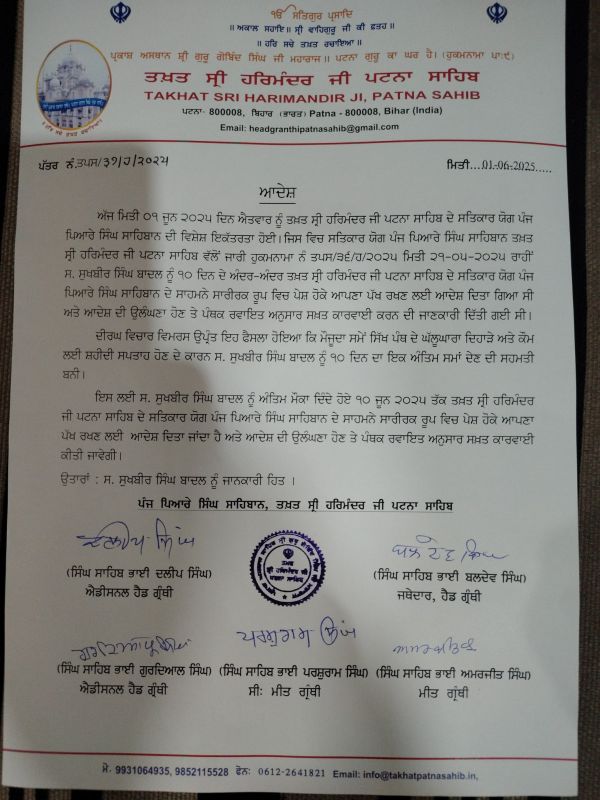 ੴ ਸਤਿਗੁਰ ਪ੍ਰਸਾਦਿ
॥ ਅਕਾਲ ਸਹਾਇ॥ ਸ੍ਰੀ ਵਾਹਿਗੁਰੂ ਜੀ ਕੀ ਫ਼ਤਹ॥
॥ ਹਰਿ ਸਚੇ ਤਖ਼ਤ ਰਚਾਇਆ॥
ਪ੍ਰਕਾਸ਼ ਅਸਥਾਨ ਸ਼੍ਰੀ ਗੁਰੂ ਗੋਬਿੰਦ ਸਿੰਘ ਜੀ ਮਹਾਰਾਜ॥ ਪਟਨਾ ਗੁਰੂ ਕਾ ਘਰ ਹੈ। (ਹੁਕਮਨਾਮਾ ਪਾ:੯)
ਤਖ਼ਤ ਸ੍ਰੀ ਹਰਿਮੰਦਰ ਜੀ ਪਟਨਾ ਸਾਹਿਬ
TAKHAT SRI HARIMANDIR JI, PATNA SAHIB
ਪਟਨਾ- 800008, ਬਿਹਾਰ (ਭਾਰਤ) Patna - 800008, Bihar (India)
Email: headgranthipatnasahib@gmail.com
ਪੱਤਰ ਨੰ.ਤਪਸ/੩੭/ਹ/੨੦੨੫ ਮਿਤੀ...01-06-2025.....
ਆਦੇਸ਼
ਅੱਜ ਮਿਤੀ ੦੧ ਜੂਨ ੨੦੨੫ ਦਿਨ ਐਤਵਾਰ ਨੂੰ ਤਖ਼ਤ ਸ੍ਰੀ ਹਰਿਮੰਦਰ ਜੀ ਪਟਨਾ ਸਾਹਿਬ ਦੇ ਸਤਿਕਾਰ ਯੋਗ ਪੰਜ
ਪਿਆਰੇ ਸਿੰਘ ਸਾਹਿਬਾਨ ਦੀ ਵਿਸ਼ੇਸ਼ ਇਕੱਤਰਤਾ ਹੋਈ।ਜਿਸ ਵਿਚ ਸਤਿਕਾਰ ਯੋਗ ਪੰਜ ਪਿਆਰੇ ਸਿੰਘ ਸਾਹਿਬਾਨ ਤਖ਼ਤ
ਸ੍ਰੀ ਹਰਿਮੰਦਰ ਜੀ ਪਟਨਾ ਸਾਹਿਬ ਵੱਲੋਂ ਜਾਰੀ ਹੁਕਮਨਾਮਾ ਨੰ ਤਪਸ/੩੬/ਹ/੨੦੨੫ ਮਿਤੀ ੨੧-੦੫-੨੦੨੫ ਰਾਹੀਂ
ਸ. ਸੁਖਬੀਰ ਸਿੰਘ ਬਾਦਲ ਨੂੰ ੧੦ ਦਿਨ ਦੇ ਅੰਦਰ-ਅੰਦਰ ਤਖ਼ਤ ਸ੍ਰੀ ਹਰਿਮੰਦਰ ਜੀ ਪਟਨਾ ਸਾਹਿਬ ਦੇ ਸਤਿਕਾਰ ਯੋਗ ਪੰਜ
ਪਿਆਰੇ ਸਿੰਘ ਸਾਹਿਬਾਨ ਦੇ ਸਾਹਮਣੇ ਸਾਰੀਰਕ ਰੂਪ ਵਿਚ ਪੇਸ਼ ਹੋਕੇ ਆਪਣਾ ਪੱਖ ਰਖਣ ਲਈ ਆਦੇਸ਼ ਦਿਤਾ ਗਿਆ ਸੀ
ਅਤੇ ਆਦੇਸ਼ ਦੀ ਉਲੰਘਣਾ ਹੋਣ ਤੇ ਪੰਥਕ ਰਵਾਇਤ ਅਨੁਸਾਰ ਸਖ਼ਤ ਕਾਰਵਾਈ ਕਰਨ ਦੀ ਜਾਣਕਾਰੀ ਦਿੱਤੀ ਗਈ ਸੀ।
ਦੀਰਘ ਵਿਚਾਰ ਵਿਮਰਸ ਉਪ੍ਰੰਤ ਇਹ ਫੈਸਲਾ ਹੋਇਆ ਕਿ ਮੌਜੂਦਾ ਸਮੇਂ ਸਿੱਖ ਪੰਥ ਦੇ ਘੱਲੂਘਾਰਾ ਦਿਹਾੜੇ ਅਤੇ ਕੌਮ
ਲਈ ਸ਼ਹੀਦੀ ਸਪਤਾਹ ਹੋਣ ਦੇ ਕਾਰਨ ਸ. ਸੁਖਬੀਰ ਸਿੰਘ ਬਾਦਲ ਨੂੰ ੧੦ ਦਿਨ ਦਾ ਇਕ ਅੰਤਿਮ ਸਮਾਂ ਦੇਣ ਦੀ ਸਹਮਤੀ
ਬਨੀ।
ਇਸ ਲਈ ਸ. ਸੁਖਬੀਰ ਸਿੰਘ ਬਾਦਲ ਨੂੰ ਅੰਤਿਮ ਮੌਕਾ ਦਿੰਦੇ ਹੋਏ ੧੦ ਜੂਨ ੨੦੨੫ ਤੱਕ ਤਖ਼ਤ ਸ੍ਰੀ ਹਰਿਮੰਦਰ
ਜੀ ਪਟਨਾ ਸਾਹਿਬ ਦੇ ਸਤਿਕਾਰ ਯੋਗ ਪੰਜ ਪਿਆਰੇ ਸਿੰਘ ਸਾਹਿਬਾਨ ਦੇ ਸਾਹਮਨੇ ਸਾਰੀਰਕ ਰੂਪ ਵਿਚ ਪੇਸ਼ ਹੋਕੇ ਆਪਣਾ
ਪੱਖ ਰਖਣ ਲਈ ਆਦੇਸ਼ ਦਿਤਾ ਜਾਂਦਾ ਹੈ ਅਤੇ ਆਦੇਸ਼ ਦੀ ਉਲੰਘਣਾ ਹੋਣ ਤੇ ਪੰਥਕ ਰਵਾਇਤ ਅਨੁਸਾਰ ਸਖ਼ਤ ਕਾਰਵਾਈ
ਕੀਤੀ ਜਾਵੇਗੀ।
ਉਤਾਰਾਂ : ਸ. ਸੁਖਬੀਰ ਸਿੰਘ ਬਾਦਲ ਨੂੰ ਜਾਣਕਾਰੀ ਹਿਤ ।
ਪੰਜ ਪਿਆਰੇ ਸਿੰਘ ਸਾਹਿਬਾਨ, ਤਖ਼ਤ ਸ੍ਰੀ ਹਰਿਮੰਦਰ ਜੀ ਪਟਨਾ ਸਾਹਿਬ
ਦਲੀਪ ਸਿੰਘ
ਤਖ਼ਤ
ਸ੍ਰੀ ਹਰਿਮੰਦਰ ਜੀ
ਪਟਨਾ ਸਾਹਿਬ
ਬਲਦੇਵ ਸਿੰਘ
(ਸਿੰਘ ਸਾਹਿਬ ਭਾਈ ਦਲੀਪ ਸਿੰਘ) (ਸਿੰਘ ਸਾਹਿਬ ਭਾਈ ਬਲਦੇਵ ਸਿੰਘ)
ਐਡੀਸਨਲ ਹੈਡ ਗ੍ਰੰਥੀ ਜਥੇਦਾਰ, ਹੈਡ ਗ੍ਰੰਥੀ
ਪਰਸ਼ੁਰਾਮ ਸਿੰਘ
(ਸਿੰਘ ਸਾਹਿਬ ਭਾਈ ਗੁਰਦਿਆਲ ਸਿੰਘ) (ਸਿੰਘ ਸਾਹਿਬ ਭਾਈ ਪਰਸ਼ੁਰਾਮ ਸਿੰਘ) (ਸਿੰਘ ਸਾਹਿਬ ਭਾਈ ਅਮਰਜੀਤ ਸਿੰਘ)
ਐਡੀਸਨਲ ਹੈਡ ਗ੍ਰੰਥੀ ਸੀ: ਮੀਤ ਗ੍ਰੰਥੀ ਮੀਤ ਗ੍ਰੰਥੀ
ਮੋ. 9931064935, 9852115528 ਫੋਨ: 0612-2641821 Email: info@takhatpatnasahib.in,